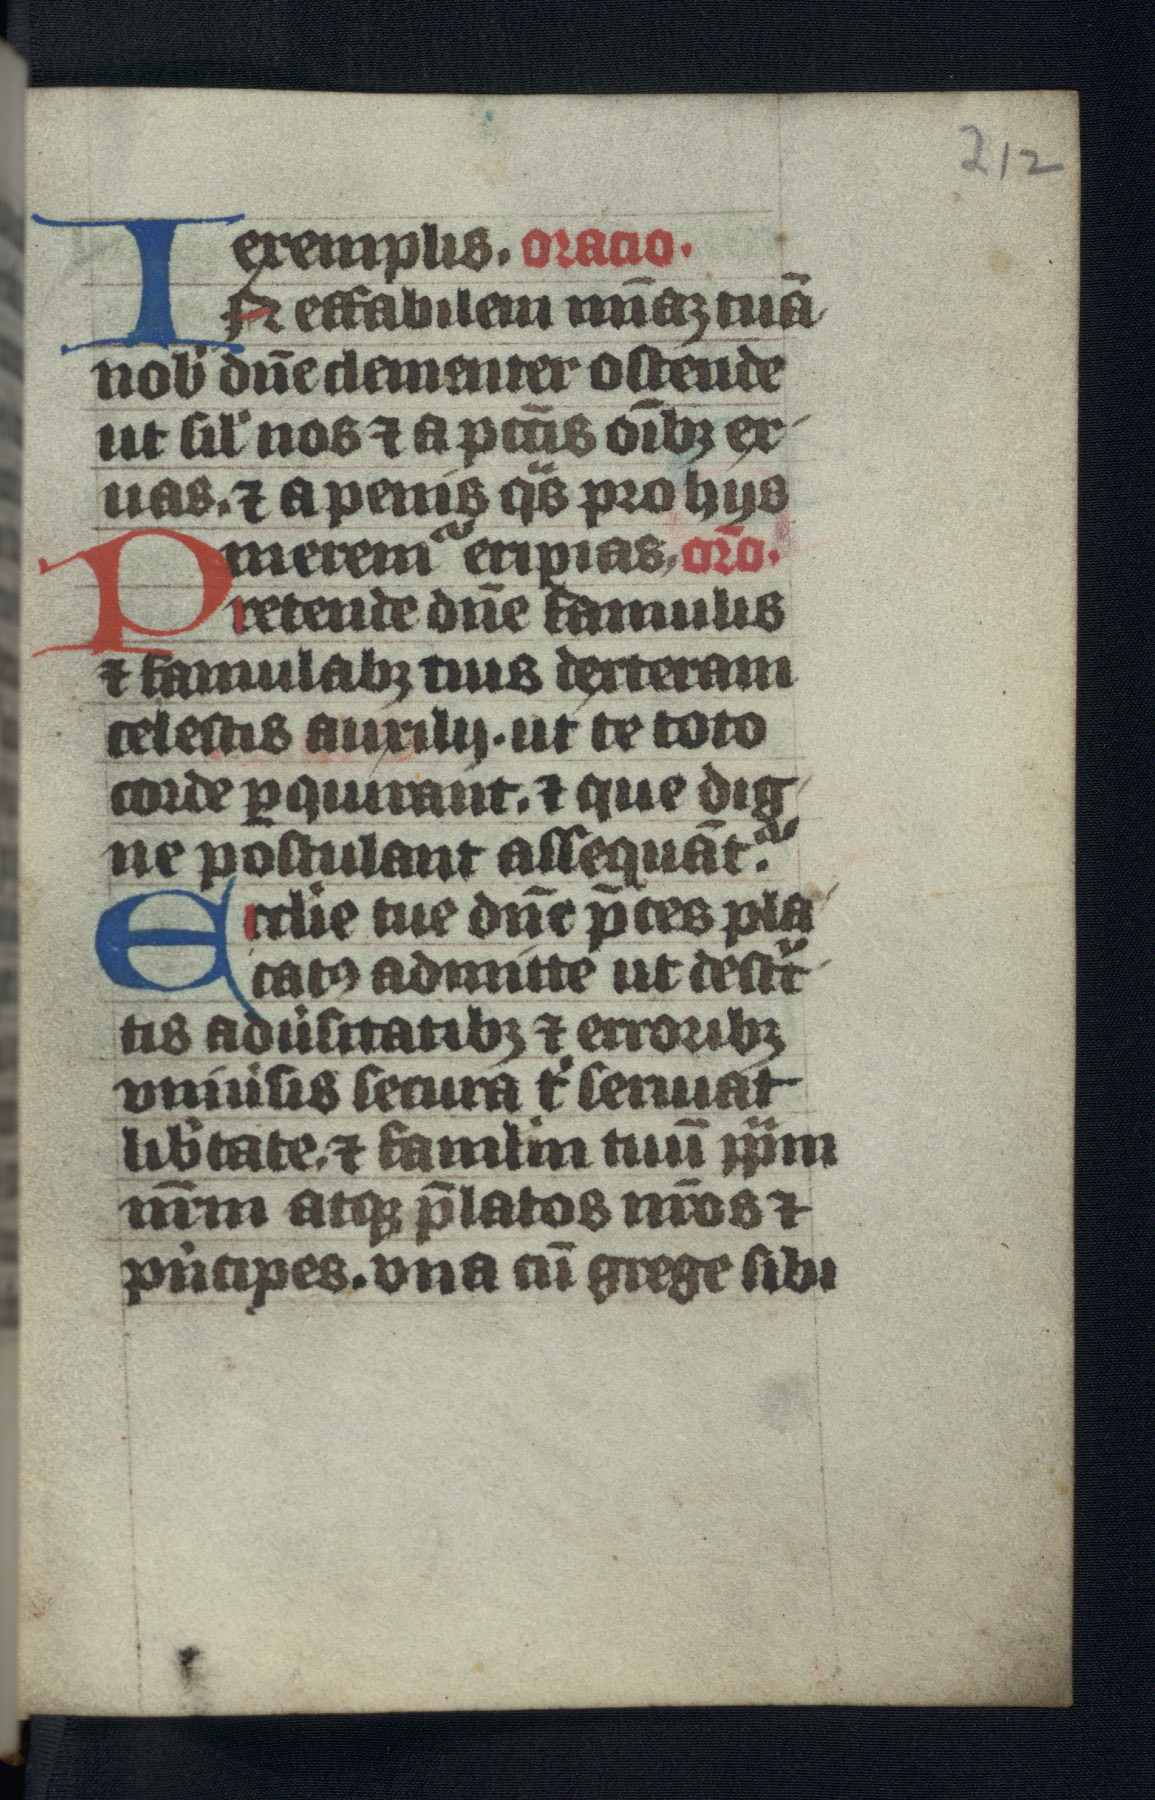 212
exemplis. oracio.
IN effabilem mīaꝫ tuā
nob̾ dn̄e clementer ostende
ut sil̾ nos ⁊ a pcc̄is oībꝫ ex
uas. ⁊ a penis qs̄ pro hijs
meremᷣ eripias. or̄o.
Pretende dn̄e famulis
⁊ famulabꝫ tuis dexteram
celestis auxilij. ut te toto
corde ꝑquirant. ⁊ que dig
ne postulant assequāt.ᷣ
Ecclie tue dn̄e p̄ces pla
catꝰ admitte ut destr̄c
tis adu̾sitatibꝫ ⁊ erroribꝫ
vniu̾sis secura t̾ seruiat
lib̾tate. ⁊ famlm tuū pp̄m
nr̄m atqꝫ p̄latos nr̄os ⁊
pⁱncipes. vna cū grege sibi